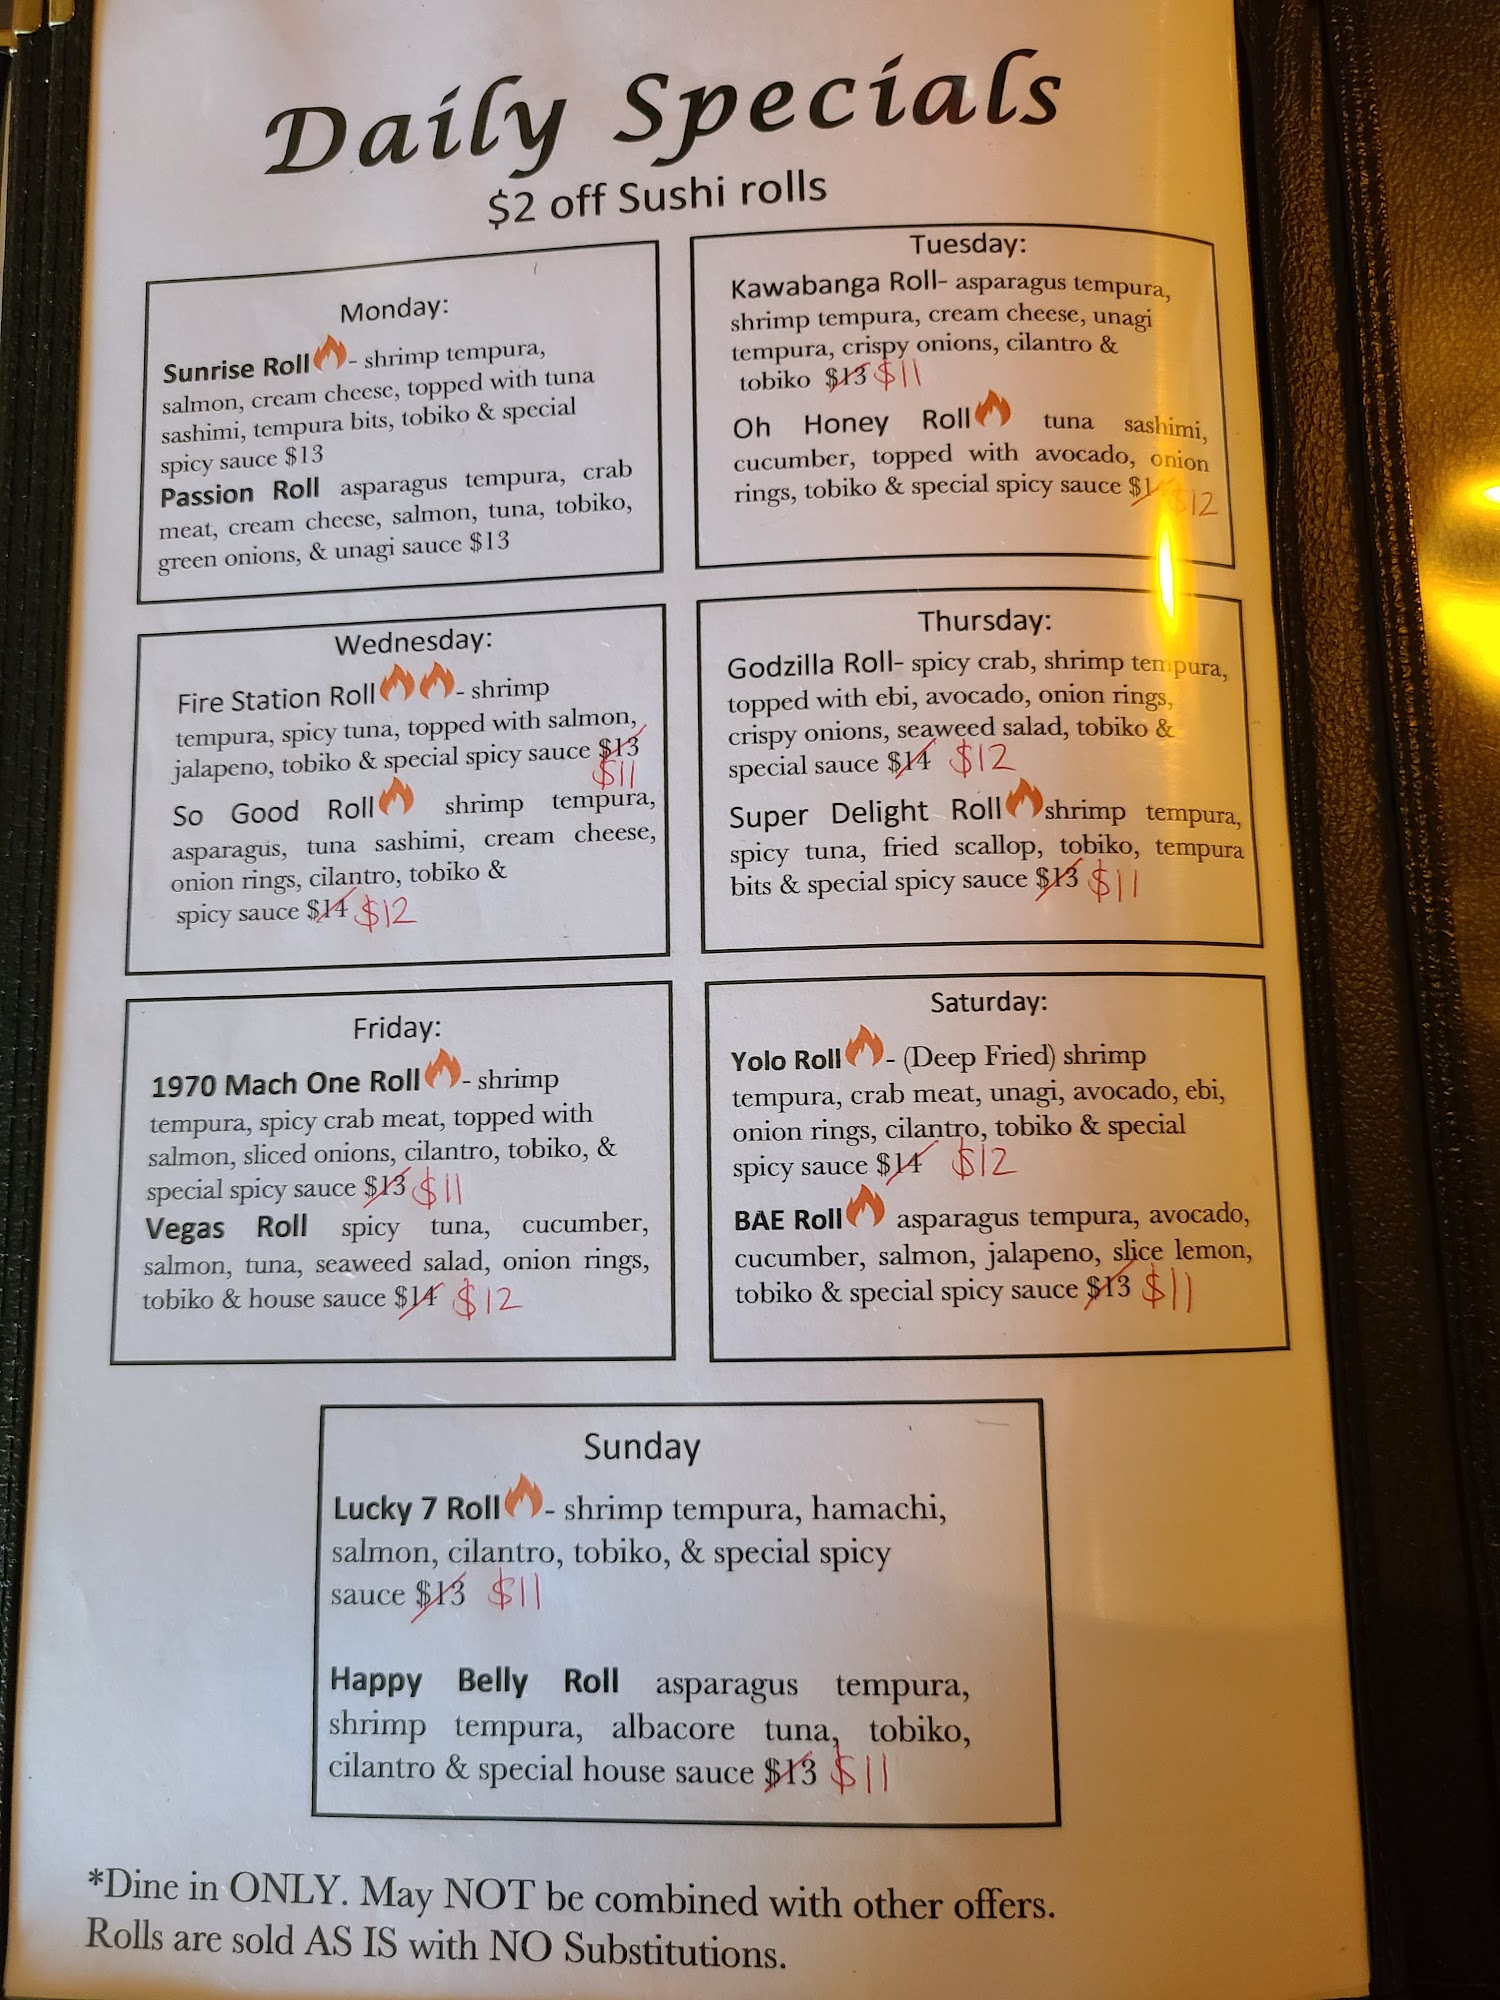 Daily Specials
$2 off Sushi rolls
Monday:
Sunrise Roll - shrimp tempura,
salmon, cream cheese, topped with tuna
sashimi, tempura bits, tobiko & special
spicy sauce $13
Passion Roll asparagus tempura, crab
meat, cream cheese, salmon, tuna, tobiko,
green onions, & unagi sauce $13
Tuesday:
Kawabanga Roll- asparagus tempura,
shrimp tempura, cream cheese, unagi
tempura, crispy onions, cilantro &
tobiko $13 $11
Oh Honey Roll tuna sashimi,
cucumber, topped with avocado, onion
rings, tobiko & special spicy sauce $14 $12
Wednesday:
Fire Station Roll - shrimp
tempura, spicy tuna, topped with salmon,
jalapeno, tobiko & special spicy sauce $13
$11
So Good Roll shrimp tempura,
asparagus, tuna sashimi, cream cheese,
onion rings, cilantro, tobiko &
spicy sauce $14 $12
Thursday:
Godzilla Roll- spicy crab, shrimp tempura,
topped with ebi, avocado, onion rings,
crispy onions, seaweed salad, tobiko &
special sauce $14 $12
Super Delight Roll shrimp tempura,
spicy tuna, fried scallop, tobiko, tempura
bits & special spicy sauce $13 $11
Friday:
1970 Mach One Roll - shrimp
tempura, spicy crab meat, topped with
salmon, sliced onions, cilantro, tobiko, &
special spicy sauce $13 $11
Vegas Roll spicy tuna, cucumber,
salmon, tuna, seaweed salad, onion rings,
tobiko & house sauce $14 $12
Saturday:
Yolo Roll - (Deep Fried) shrimp
tempura, crab meat, unagi, avocado, ebi,
onion rings, cilantro, tobiko & special
spicy sauce $14 $12
BAE Roll asparagus tempura, avocado,
cucumber, salmon, jalapeno, slice lemon,
tobiko & special spicy sauce $13 $11
Sunday
Lucky 7 Roll - shrimp tempura, hamachi,
salmon, cilantro, tobiko, & special spicy
sauce $13 $11
Happy Belly Roll asparagus tempura,
shrimp tempura, albacore tuna, tobiko,
cilantro & special house sauce $13 $11
*Dine in ONLY. May NOT be combined with other offers.
Rolls are sold AS IS with NO Substitutions.